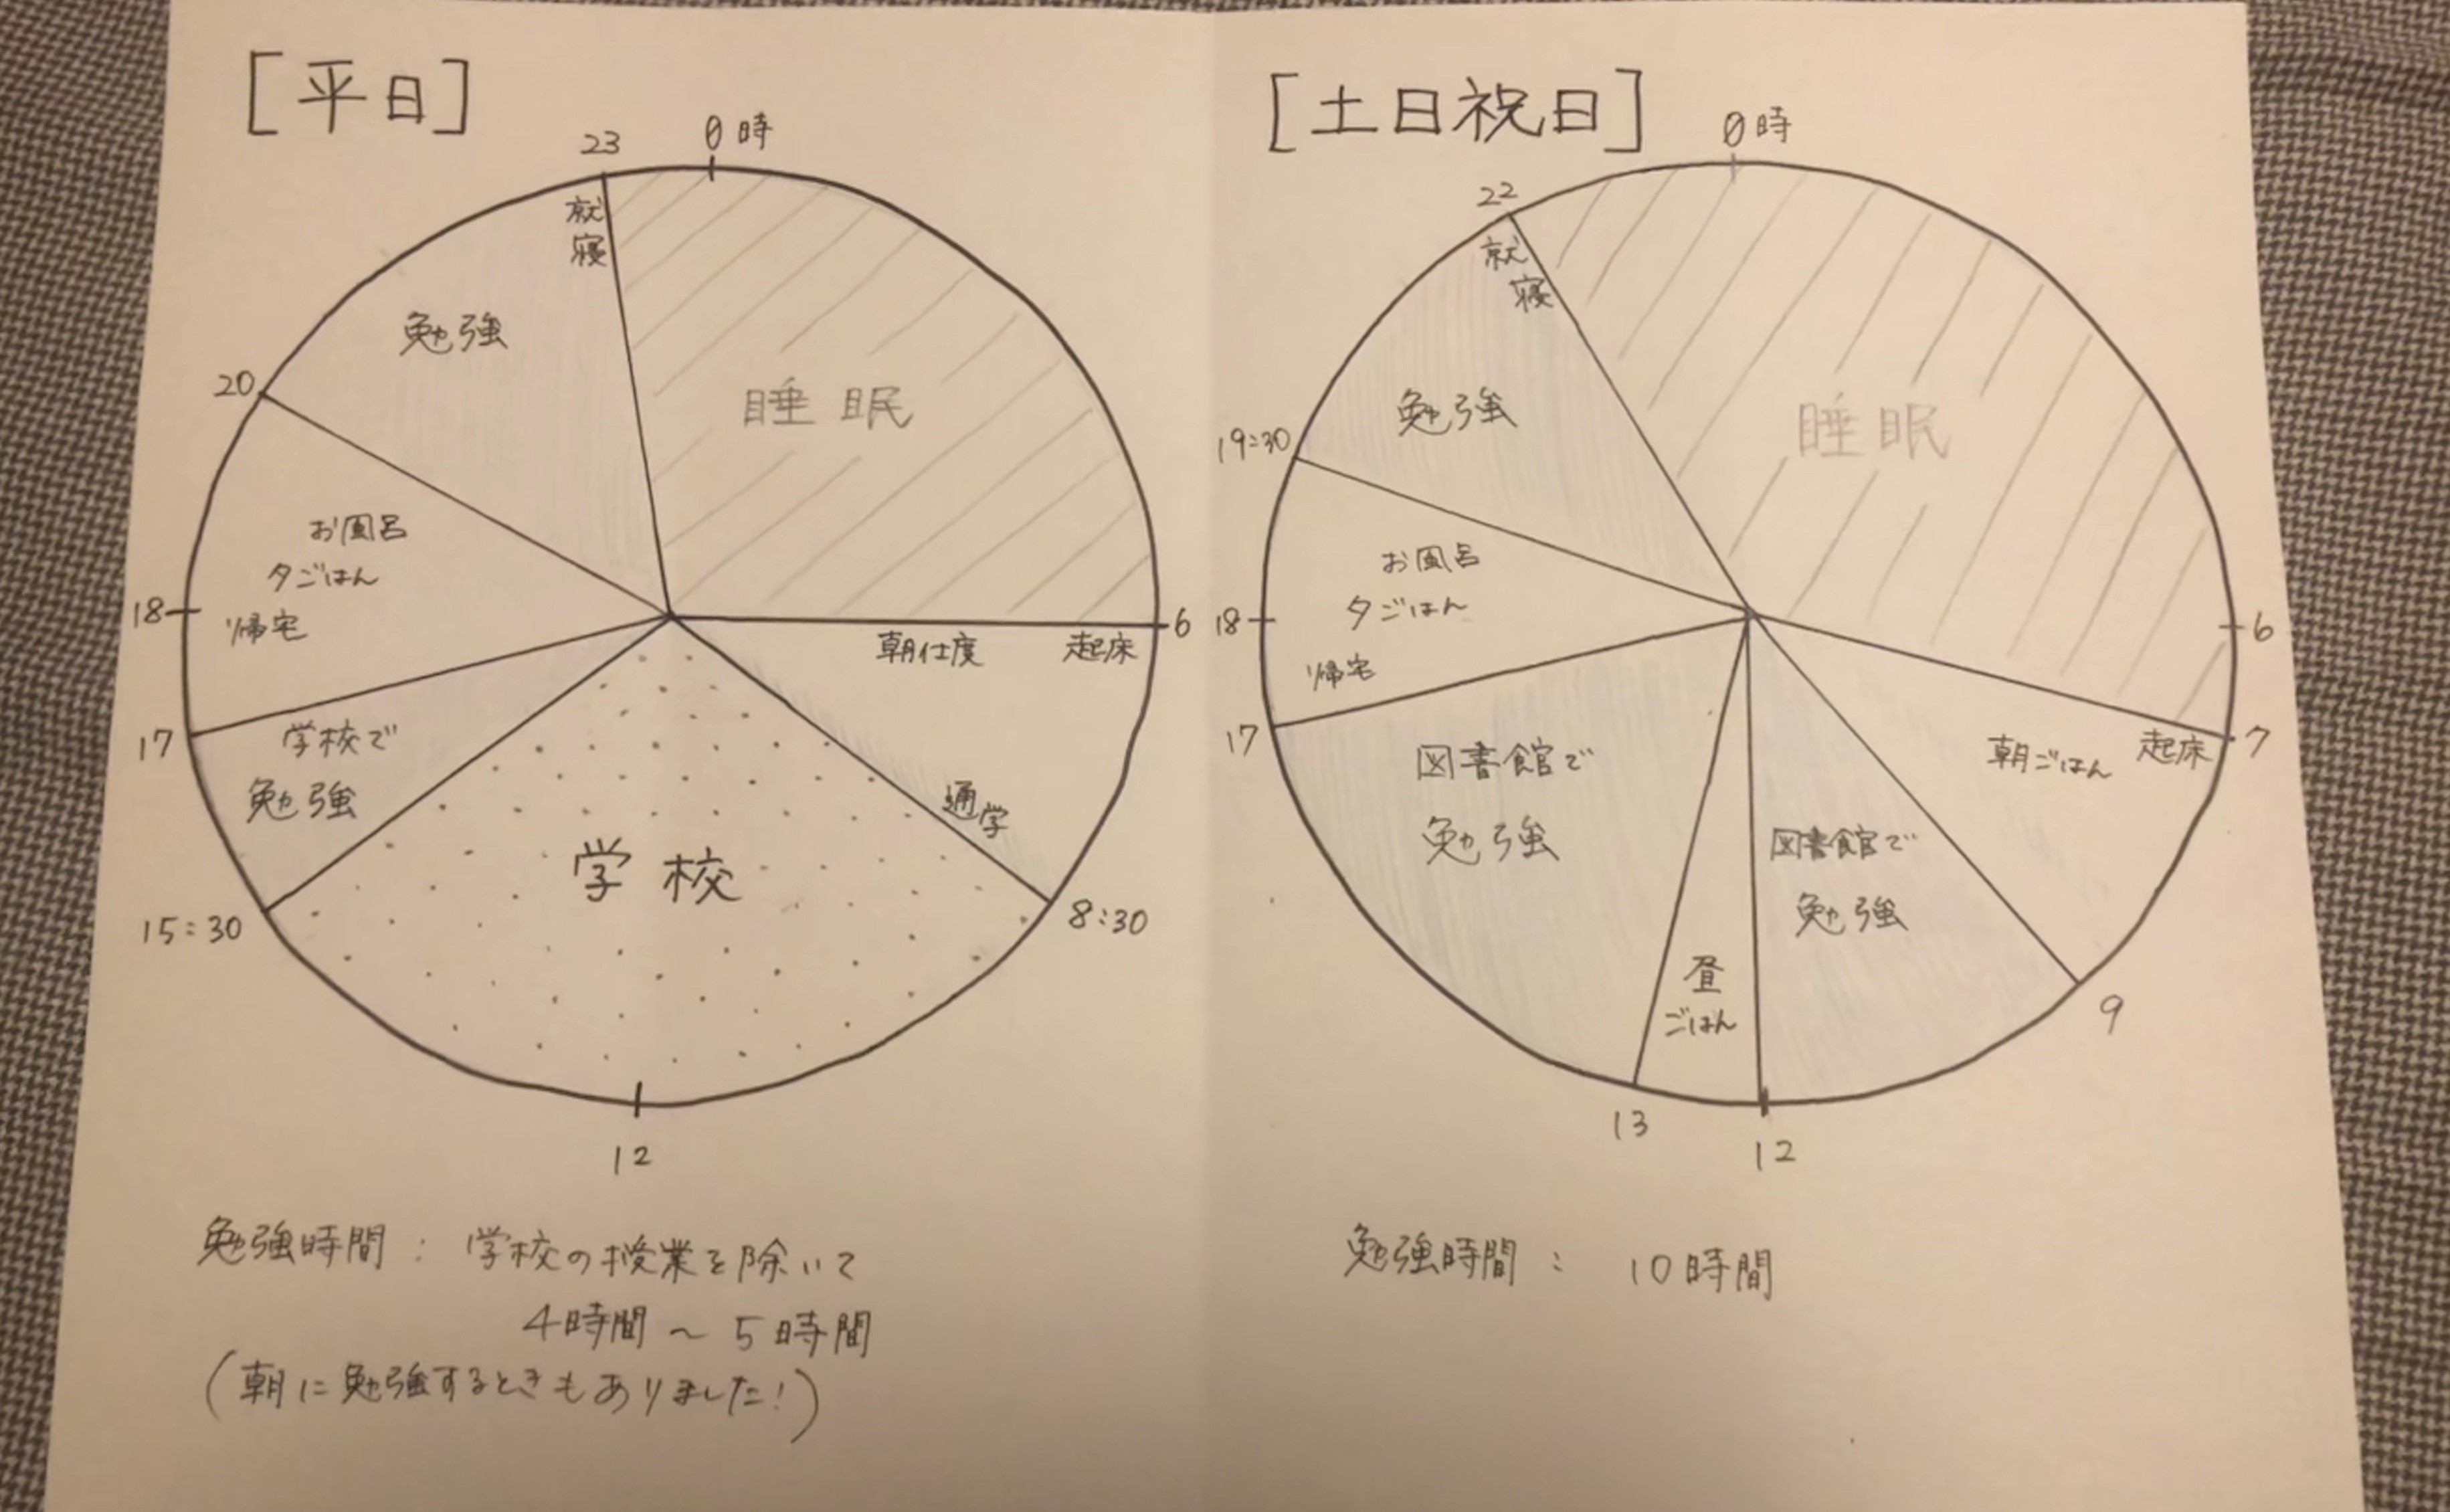 [平日]
23
0時
就寝
勉強
睡眠
20
お風呂
夕ごはん
18
帰宅
6
朝仕度
起床
17
学校で
勉強
通学
学校
15:30
8:30
12
勉強時間 : 学校の授業を除いて
4時間 〜 5時間
(朝に勉強するときもありました!)
[土日祝日]
0時
22
就寝
勉強
睡眠
19:30
お風呂
夕ごはん
18
帰宅
6
17
図書館で
勉強
朝ごはん
起床
7
図書館で
勉強
昼
ごはん
9
13
12
勉強時間 : 10時間